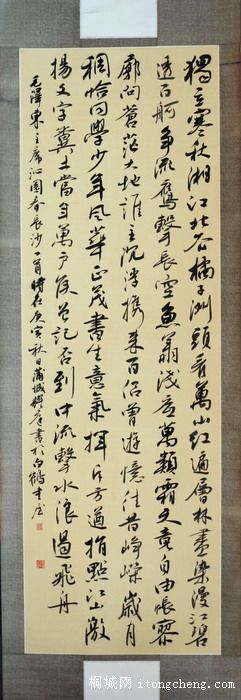 獨立寒秋湘江北去橘子洲頭看萬山紅遍層林盡染漫江碧
透百舸争流鷹擊長空魚翔淺底萬類霜天竞自由悵寥
廓問蒼茫大地誰主沉浮攜來百侣曾遊憶往昔峥嵘歲月
稠恰同學少年風華正茂書生意氣揮斥方遒指點江山激
揚文字糞土當年萬户侯曾記否到中流擊水浪遏飛舟
毛澤東主席沁園春長沙一首時在庚寅秋日蒲城書於白鶴屋
桐城网 itongcheng.com